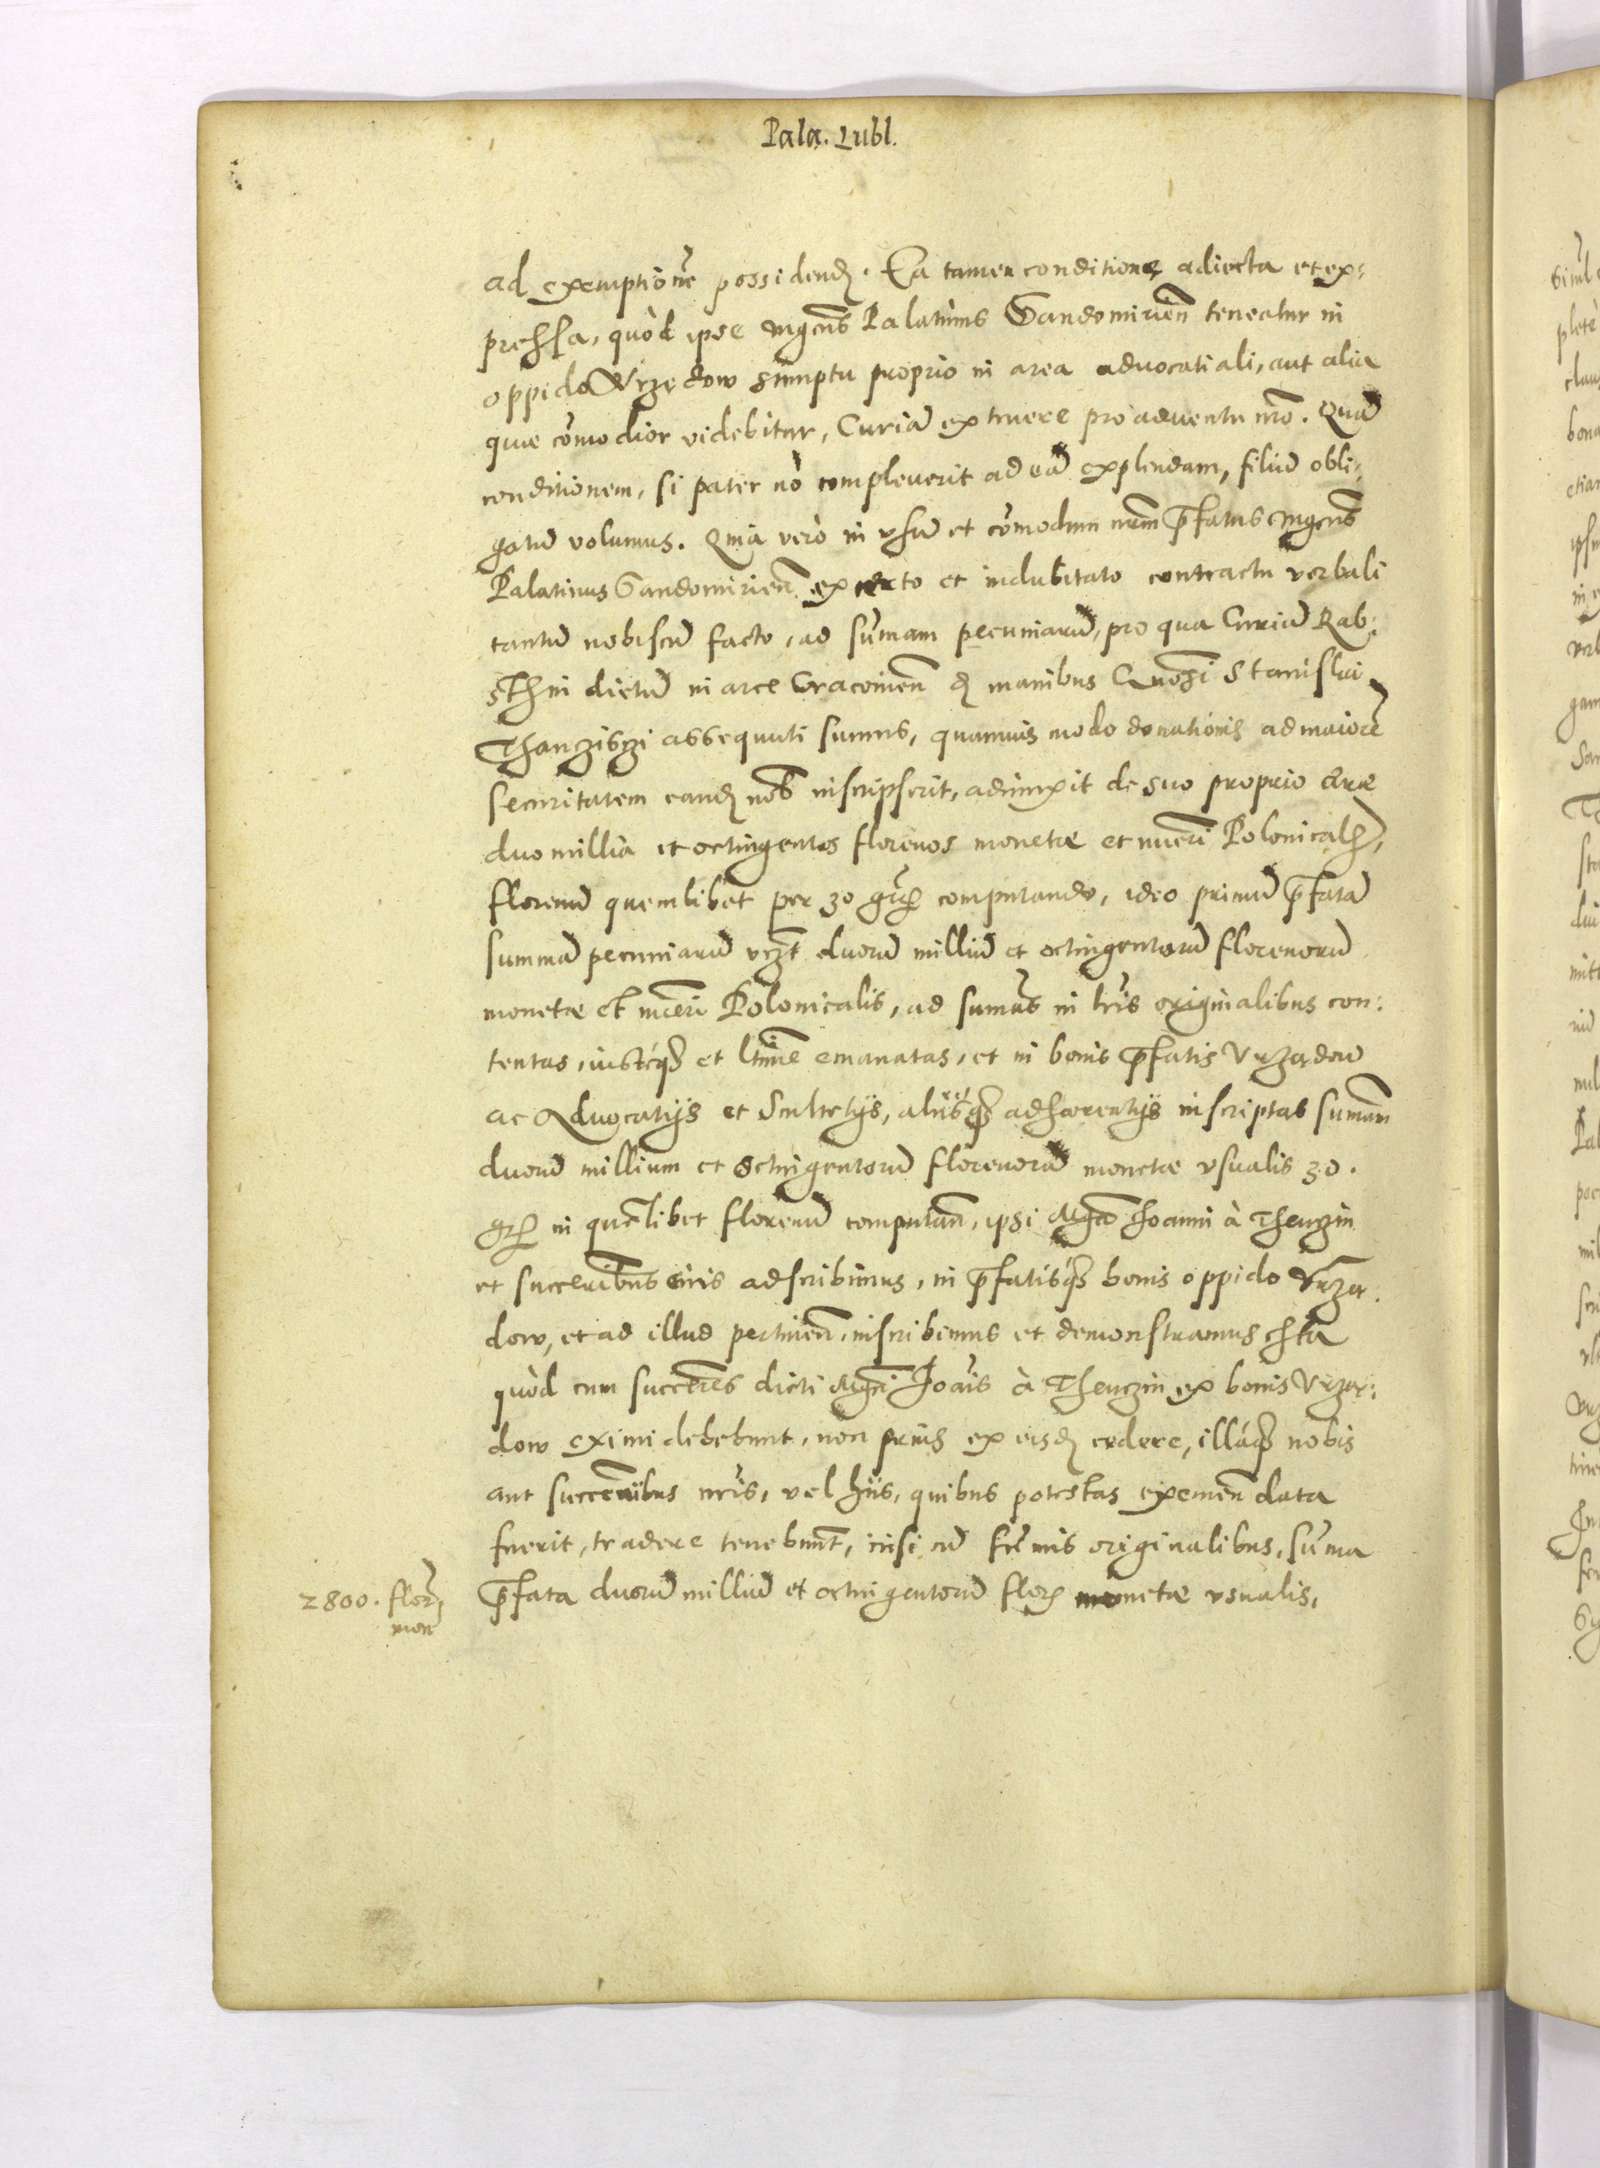 Pala. Lubl.
ad exemptionē possidend. Ea tamen conditione adiecta et ex:
pressa, quòd ipse mgcus Palatinus Sandomirien teneatur in
oppido Vrzedow sumptu proprio in area advocatiali, aut alia
quae cōmodior videbitur, Curiā extruere pro adventu nro. Quā
conditionem, si pater nō compleverit ad eā explendam, filiū obli:
gatū volumus. Quia verò in vsū et cōmodum nrum p̄fatus Mgcus
Palatinus Sandomirien. ex certo et indubitato contractu verbali
tantū nobiscū facto, ad sūmam pecuniarū, pro qua Curiā Rab:
sthin dictū in arce Cracovien d manibus Gnosi Stanislai
assequuti sumus, quamvis modo donationis ad maiorē
securitatem eand nob inscripserit, adiunxit de suo proprio aere
duo millia et octingentos florenos monetae et nueri Polonical,
florenū quemlibet per 30 gr computando, ideo primū p̄fatā
summā pecuniarū vzt duorū milliū et octingentorū florenorū
monetae et nueri Polonicalis, ad sumās in lris originalibus con:
tentas, iustèq et ltime emanatas, et in bonis p̄fatis Vrzędow
ac Advocatijs et Scultetijs, alijsq adhaerentijs inscriptas sumām
duorū millium et octingentorū florenorū monetae vsualis 30.
gr in quēlibet florenū computan, ipsi Mgco Joanni à Thenczin
et succeribus eius adscribimus, in p̄fatisq bonis oppido Vrzę
dow, et ad illud pertinen, inscribimus et demonstramus
quòd cum succeres dicti Mgci Joāis à Thenczin ex bonis Vrzę:
dow eximi debebunt, non prius ex eisd cedere, illáq nobis
aut succeribus nris, vel hijs, quibus potestas exemen data
fuerit, tradere tenebunt, nisi cū originalibus, sūma
p̄fata duorū milliū et octingentorū flor monetae vsualis,
2800. flor.
mon